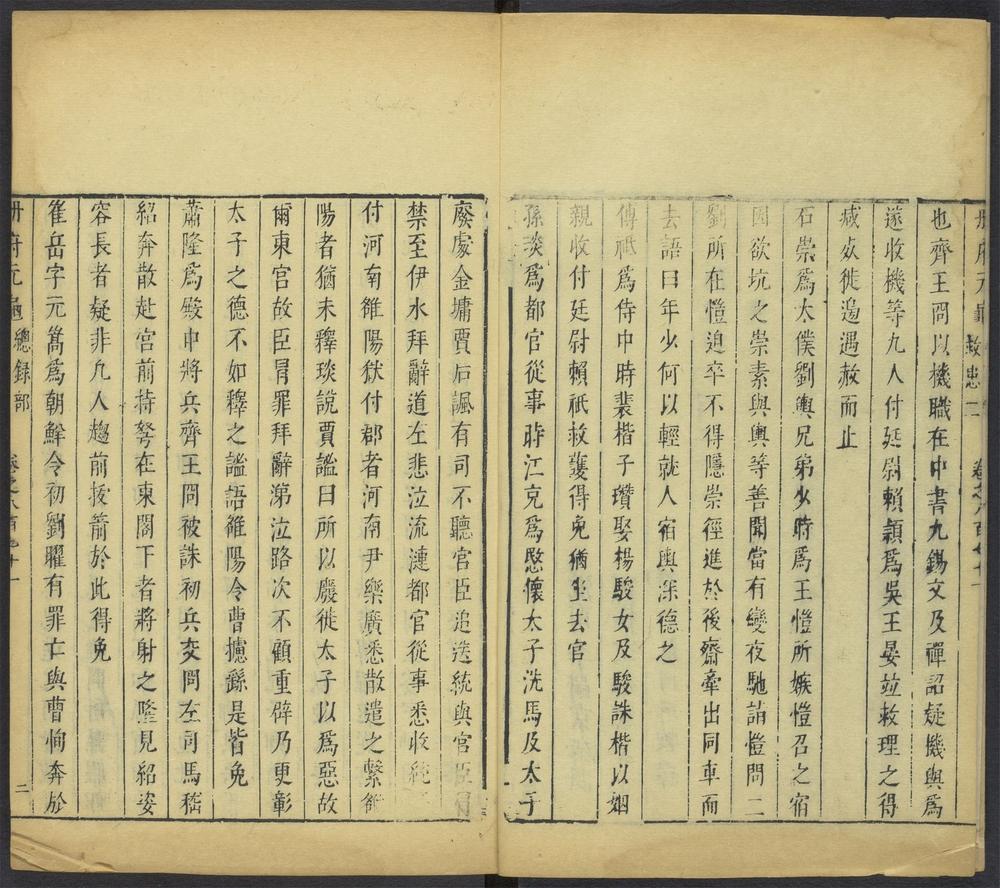 冊府元龜 救患二 卷之八百七十一
也齊王冏以機職在中書九錫文及禪詔疑機與焉
遂收機等九人付廷尉賴頴爲吳王晏並救理之得
減死徙邉遇赦而止
石崇爲大僕劉輿兄弟少時爲王愷所嫉愷召之宿
因欲坑之崇素與輿等善聞當有變夜馳詣愷問二
劉所在愷迫卒不得隱崇徑進於後齋牽出同車而
去語曰年少何以輕就人宿輿深德之
傅祇爲侍中時裴楷子瓚娶楊駿女及駿誅楷以姻
親收付廷尉賴祇救護得免猶坐去官
孫琰爲都官從事時江克爲愍懷太子洗馬及太子
廢處金墉賈后諷有司不聽宮臣追送統與宮臣冐
禁至伊水拜辭道左悲泣流漣都官從事悉收統
付河南雒陽獄付郡者河南尹樂廣悉散遣之繫雒
陽者猶未釋琰說賈謐曰所以廢徙太子以爲惡故
爾東宮故臣冐罪拜辭涕泣路次不顧重辟乃更彰
太子之德不如釋之謐語雒陽令曹攄繇是皆免
蕭隆爲殿中將兵齊王冏被誅初兵交冏左司馬嵇
紹奔散赴宮前持弩在東閣下者將射之隆見紹姿
容長者疑非凡人趨前拔箭於此得免
隺岳字元嵩爲朝鮮令初劉曜有罪亡與曹恂奔於
冊府元龜總録部 卷之八百七十一 二